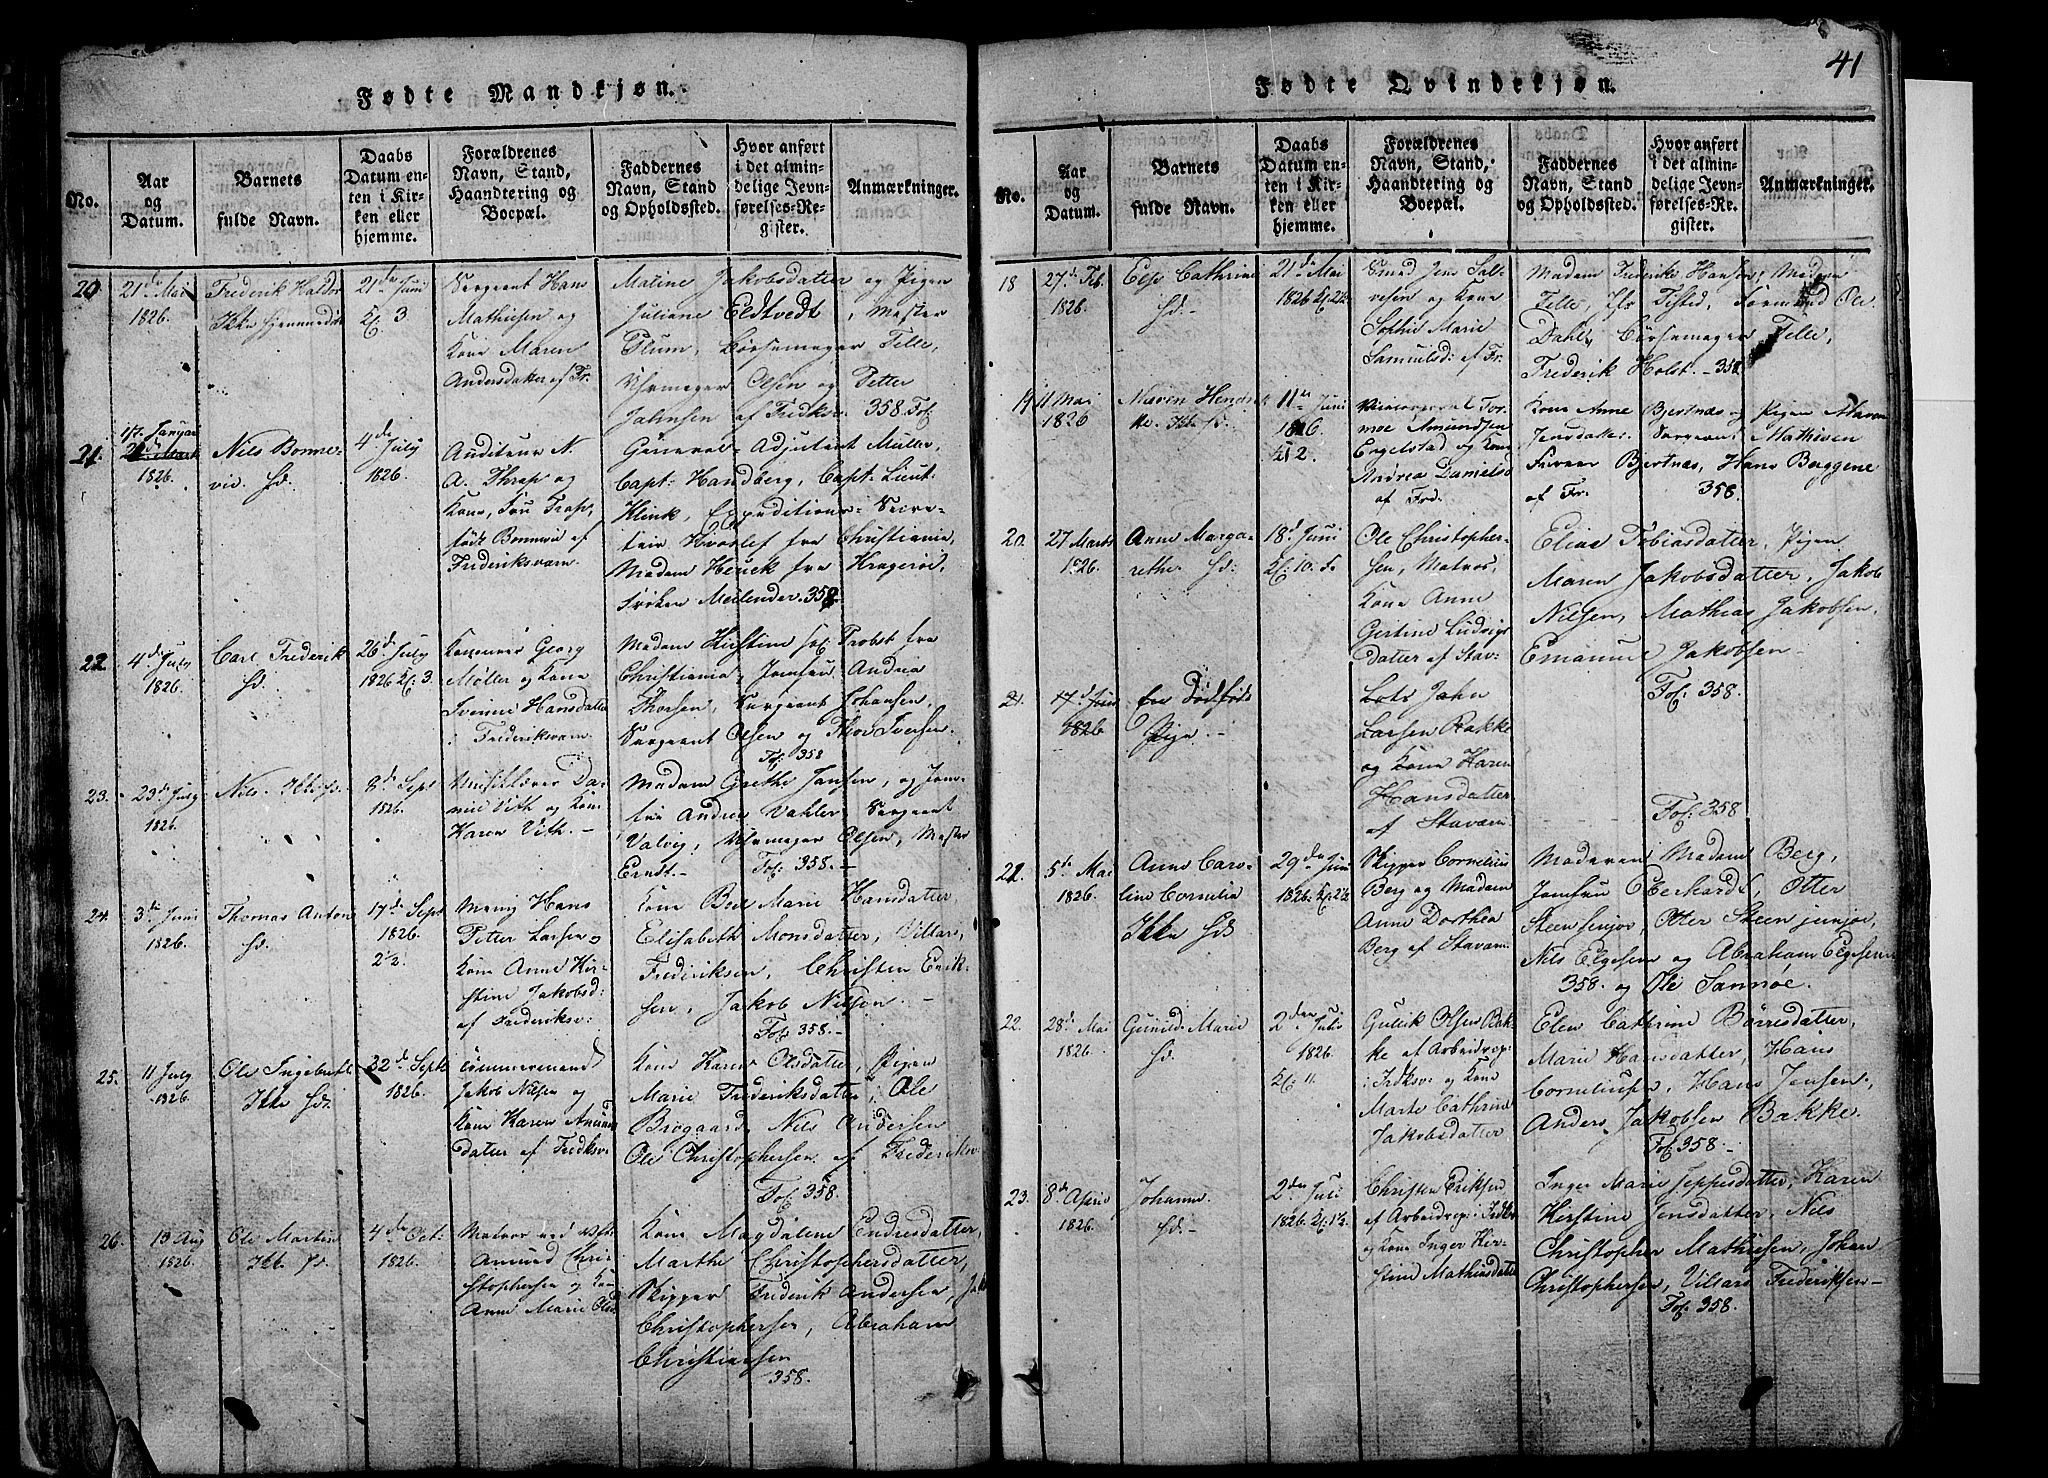 41
Fødte Mandkjøn.
No.
Aar
og
Datum.
Barnets
fulde Navn.
Daabs
Datum en-
ten i Kir-
ken eller
hjemme.
Forældrenes
Navn, Stand,
Haandtering og
Boepæl.
Faddernes
Navn, Stand
og Opholdssted.
Hvor anført
i det almin-
delige Jevn-
førelses-Re-
gister.
Anmærkninger.
20
21de Mai
1826.
Frederik Haldor
Ikke hjemmedøbt
21de Juni
Kl. 3
Sergeant Hans
Mathiesen og
Kone Maren
Andersdatter af Fr.
Matine Jakobsdatter og Pigen
Juliane Eldtvedt, Mester
Plum, Børsemager Telle,
Uhrmager Olsen og Petter
Jahnsen af Fredksv. 358. Fol
21.
17. Januar
1826.
Nils Bonne-
vie. Hd.
4de July
1826.
Auditeur N.
A. Thrap og
Kone, Fru Trap,
født Bonnevie af
Frederiksværn.
General-Adjutant Müller,
Capt: Handberg, Capt: Lieut:
Klink, Expeditions-Secre-
tair Hvoslef fra Christiania,
Madam Heuck fra Kragerøe,
Frøken Meilender. 358
22.
4de July
1826.
Carl Frederik
Hd.
26de July
1826 Kl. 3
Georg
Møller og Kone
Sverine Hansdatter
i Frederiksværn.
Madam Kirstine Probst fra
Christiania, Jomfru Andrea
Thorsen, Sergeant Johansen,
Sergeant Olsen og Thor Iversen.
Fol. 358
23.
23de July
1826.
Nils
8de Sept
1826.
Vith og Kone
Karen Vith.
Madam Grethe Jansen, og Jom-
fru Andrea Vahler, Sergeant
Valvig, Uhrmager Olsen, Mester
Ernst. Fol. 358.
24.
3de Juni
1826.
Thomas Anton
Hd.
17de Sept
1826.
2½.
Hans
Petter Larsen og
Kone Anne Kir-
stine Jakobsd:
af Frederiksv.
Kone Berl Marie Hansdatter,
Elisabeth Monsdatter, Villars
Frederiksen, Christen Erik-
sen, Jakob Nilsen.
Fol. 358.
25.
11 July
1826
Ole Ingebrecht
Ikke Hd.
Sept
1826.
Tømmermand
Jakob Nilsen og
Kone Karen Amund
datter af Fredksv.
Kone Karen Olsdatter, Pigen
Marie Frederiksdatter, Ole
Brogaard, Nils Andersen
Ole Christophersen af Frederiksv.
Fol. 358.
26.
19 Aug
1826.
Ole Martin
Ikke Hd.
4de Oct:
1826.
Matros ved
Amund Chri-
stophersen og Kone
Anne Marie Olsd
Kone Magdalene Endresdatter,
Marthe Christophersdatter,
Skipper Frederik Andersen,
Christophersen, Abraham
Christiansen
358.
Fødte Qvindekjøn.
No.
Aar
og
Datum.
Barnets
fulde Navn.
Daabs
Datum en-
ten i Kir-
ken eller
hjemme.
Forældrenes
Navn, Stand,
Haandtering og
Boepæl.
Faddernes
Navn, Stand
og Opholdssted.
Hvor anført
i det almin-
delige Jevn-
førelses-Re-
gister.
Anmærkninger.
18
27de Feb.
1826.
Else Cathrine
Hd.
21de Mai
1826 Kl. 2½
Smed Jens Sal-
vesen og Kone
Sophie Marie
Samuelsd: af Fr.
Madam Frederike Hansen, Madam
Telle, Tisted, Ole
Dahl, Børsemager Telle,
Frederik Holst. 358
19
11 Mai
1826
Maren Hendrik
ke. Ikke Hd.
11te Juni
1826
Kl 2.
Tor-
moe Amundsen
Engelstad og Kone
Andrea Danielsd
af Frd.
Kone Anne Bjertnæs og Pigen Maren
Jensdatter. Sergeant Mathisen
Bjertnæs, Hans Berggene
af Fr. 358.
20.
27 Marts
1826.
Anne Marga-
rethe Hd:
18de Juni
Kl: 10. F.
Ole Christopher-
sen, Matros,
Kone Anne
Gertine Ludvigs
datter af Stav-
Eliae Tobiasdatter, Pigen
Maren Jakobsdatter, Jakob
Nilsen, Mathias Jakobsen,
Emanuel Jakobsen
Fol. 358.
21.
17de Juni
1826
En Dødfødt
Pige.
Lots Jahn
Larsen Rakke
og Kone Karen
Hansdatter
af Staværn.
Fol. 358
21.
5te Mai
1826.
Anne Caro-
line Cornelia
Ikke Hd
29de Juni
1826. Kl. 2½
Skipper Cornelius
Berg og Madam
Anne Dorthea
Berg af Staværn.
Moderen Madam Berg,
Jomfru Eberhardt, Otter
Steen senjor, Otter Steen junjor,
Nils Elgesen og Abraham Elgesen
358. og Ole Sannøe.
22.
28de Mai
1826.
Gunild Marie
Hd.
2den Julii
1826.
Kl: 11.
Gulik Olsen Bak-
ke af Arbeidscop:
i Frdksv. og Kone
Marte Cathrine
Jakobsdatter
Elen Cathrine Børresdatter,
Marie Hansdatter, Hans
Corneliusen, Hans Jensen,
Anders Jakobsen Bakke.
Fol. 358.
23.
8de April
1826.
Johanne.
Hd.
2den Juli
1826. Kl. 1½
Christen Eriksen
af Arbeidscop: i
og Kone Inger Kir-
stine Mathiasdatter
Inger Marie Jeppesdatter, Karen
Kirstine Jensdatter, Nils
Christopher Mathiesen, Johan
Christophersen, Villars Frederiksen
Fol. 358.